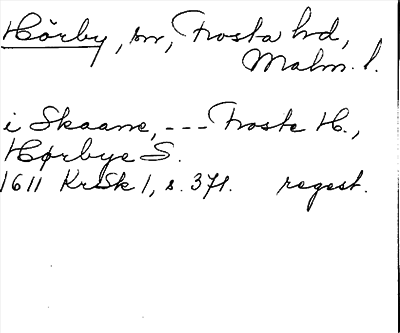 Hörby, sn, Frosta hd,
Malm. l.
i Skaane, --- Froste H.,
Hørbye S.
1611 KrSk 1, s. 371. regest.